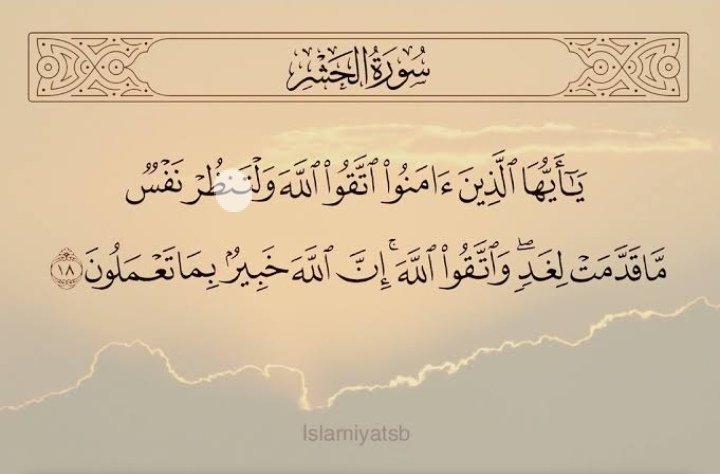 سُورَةُ الحَشْرِ
يَٰٓأَيُّهَا ٱلَّذِينَ ءَامَنُوا۟ ٱتَّقُوا۟ ٱللَّهَ وَلْتَنظُرْ نَفْسٌ
مَّا قَدَّمَتْ لِغَدٍ ۖ وَٱتَّقُوا۟ ٱللَّهَ ۚ إِنَّ ٱللَّهَ خَبِيرٌۢ بِمَا تَعْمَلُونَ ١٨
Islamiyatsb